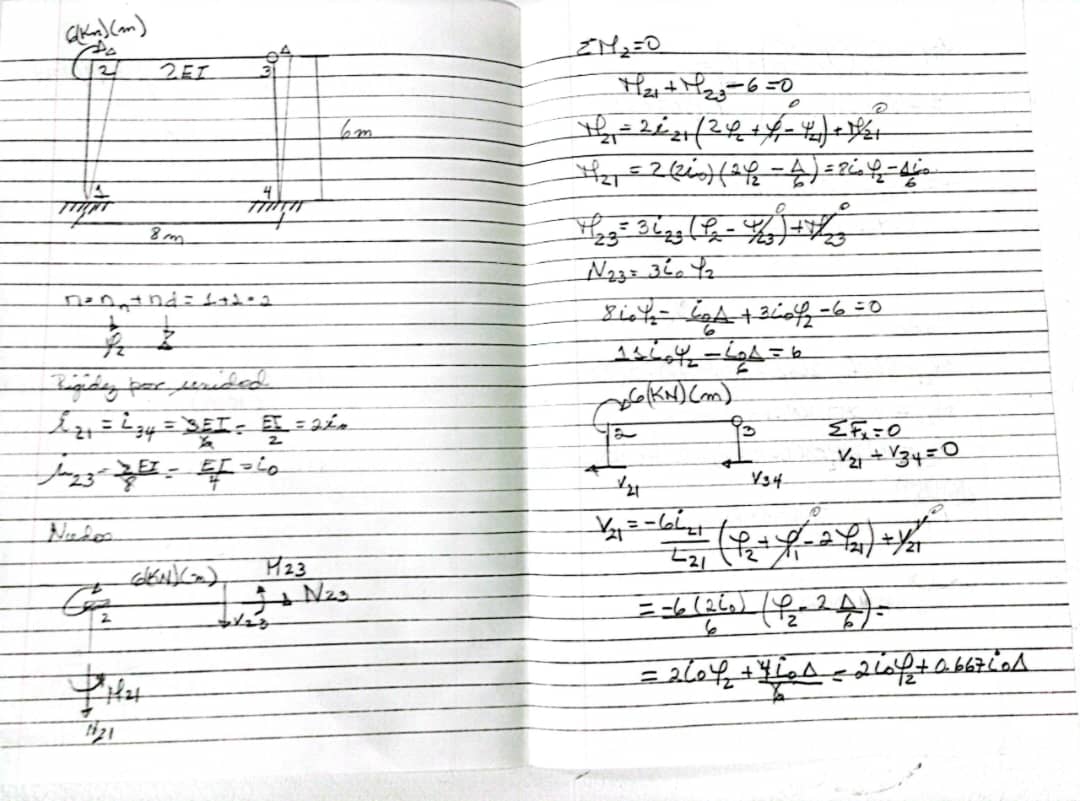 6(Kn)(m)
Δ Δ
2 2EI 3
6m
1 4
8m
n=nn+nd=1+1=2
φ2
Rigidez por unidad
i21 = i34 = 3EI/6 = EI/2 = 2i0
i23 = 2EI/8 = EI/4 = i0
Nudos
6(KN)(m) M23
N23
2 V23
M21
N21
ΣM2=0
M21+M23-6=0
M21=2i21(2φ2+φ1-ψ21)+M21 0 0
M21=2(2i0)(2φ2-Δ/6)=8i0φ2-4i0/6
M23=3i23(φ2-ψ23)+M23 0 0
M23=3i0φ2
8i0φ2-i0Δ/6+3i0φ2-6=0
11i0φ2-i0Δ/6=6
6(KN)(m)
2 3 ΣFx=0
V21 V34 V21+V34=0
V21=-6i21/L21(φ2+φ1-2φ21)+V21 0 0
=-6(2i0)/6(φ2-2Δ/6)=
=2i0φ2+4i0Δ/6=2i0φ2+0.667i0Δ